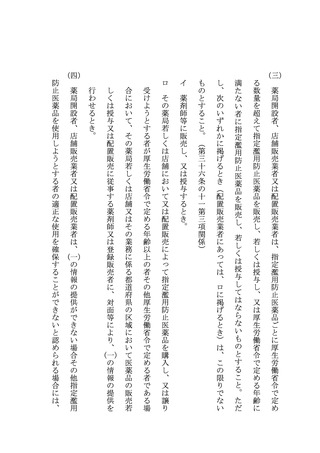 (三) 薬局開設者、店舗販売業者又は配置販売業者は、指定濫用防止医薬品ごとに厚生労働省令で定め
る数量を超えて指定濫用防止医薬品を販売し、若しくは授与し、又は厚生労働省令で定める年齢に
満たない者に指定濫用防止医薬品を販売し、若しくは授与してはならないものとすること。ただ
し、次のいずれかに掲げるとき(配置販売業者にあっては、ロに掲げるとき)は、この限りでない
ものとすること。(第三十六条の十一第三項関係)
イ 薬剤師等に販売し、又は授与するとき。
ロ その薬局若しくは店舗において又は配置販売によって指定濫用防止医薬品を購入し、又は譲り
受けようとする者が厚生労働省令で定める年齢以上の者その他厚生労働省令で定める者である場
合において、その薬局若しくは店舗又はその業務に係る都道府県の区域において医薬品の販売若
しくは授与又は配置販売に従事する薬剤師又は登録販売者に、対面等により、(一)の情報の提供を
行わせるとき。
(四) 薬局開設者、店舗販売業者又は配置販売業者は、(一)の情報の提供ができない場合その他指定濫用
防止医薬品を使用しようとする者の適正な使用を確保することができないと認められる場合には、